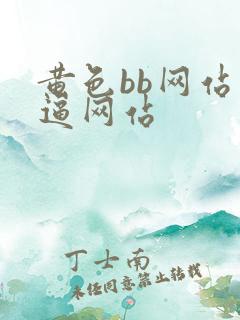 黄色bb网站
逼网站
丁士南
未经同意禁止转载